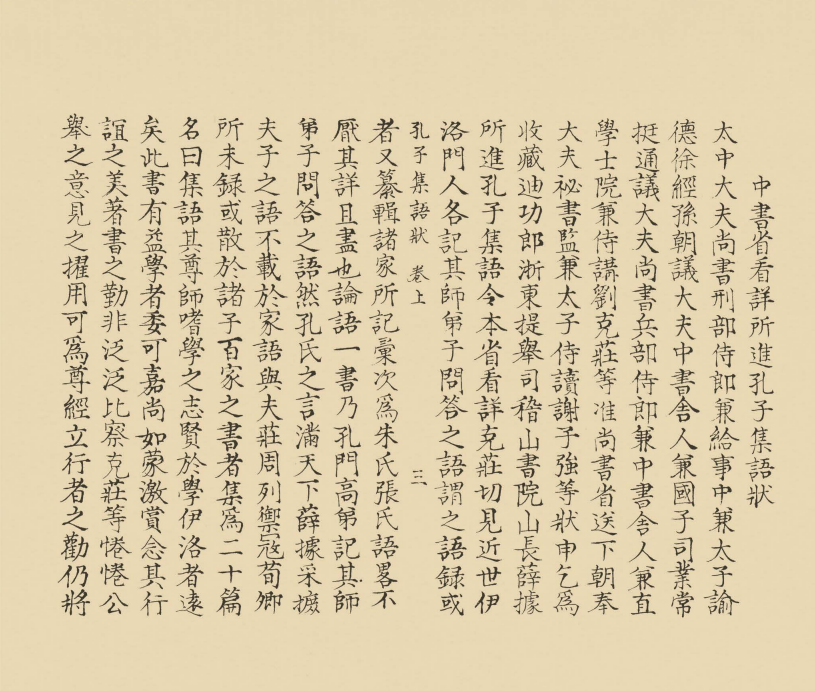 中書省看詳所進孔子集語狀
太中大夫尚書刑部侍郎兼給事中兼太子諭
德徐經孫朝議大夫中書舍人兼國子司業常
挺通議大夫尚書兵部侍郎兼中書舍人兼直
學士院兼侍講劉克莊等准尚書省送下朝奉
大夫祕書監兼太子侍讀謝子強等狀申乞為
收藏迪功郎浙東提舉司稽山書院山長薛據
所進孔子集語令本省看詳克莊切見近世伊
洛門人各記其師弟子問答之語謂之語録或
孔子集語狀 卷上 三
者又纂輯諸家所記彙次爲朱氏張氏語畧不
厭其詳且盡也論語一書乃孔門高弟記其師
弟子問答之語然孔氏之言滿天下薛據采摭
夫子之語不載於家語與夫莊周列禦寇荀卿
所未録或散於諸子百家之書者集爲二十篇
名曰集語其尊師嗜學之志賢於學伊洛者遠
矣此書有益學者委可嘉尚如蒙激賞念其行
誼之美著書之勤非泛泛比察克莊等惓惓公
舉之意見之擢用可爲尊經立行者之勸仍將